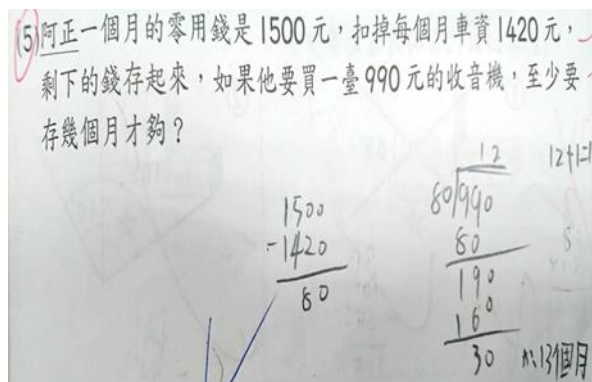 (5)阿正一個月的零用錢是1500元，扣掉每個月車資1420元，
剩下的錢存起來，如果他要買一臺990元的收音機，至少要
存幾個月才夠？
1500
-1420
80
12
80)990
80
190
160
30
12+1=1
A:13個月